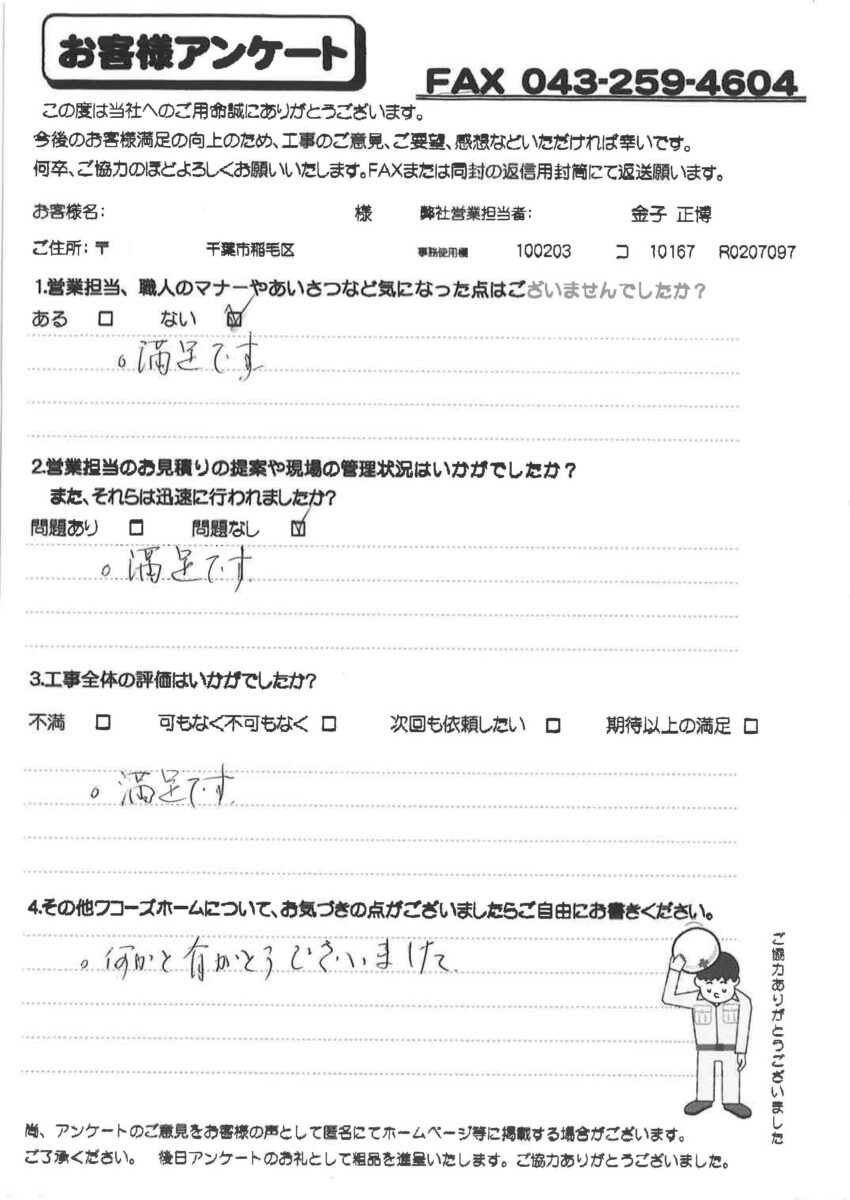 お客様アンケート
FAX 043-259-4604
この度は当社へのご用命誠にありがとうございます。
今後のお客様満足の向上のため、工事のご意見、ご要望、感想などいただければ幸いです。
何卒、ご協力のほどよろしくお願いいたします。FAXまたは同封の返信用封筒にて返送願います。
お客様名: 様 弊社営業担当者: 金子 正博
ご住所:〒 千葉市稲毛区 事務使用欄 100203 コ 10167 R0207097
1.営業担当、職人のマナーやあいさつなど気になった点はございませんでしたか?
ある □ ない ☑
○満足です
2.営業担当のお見積りの提案や現場の管理状況はいかがでしたか?
また、それらは迅速に行われましたか?
問題あり □ 問題なし ☑
○満足です
3.工事全体の評価はいかがでしたか?
不満 □ 可もなく不可もなく □ 次回も依頼したい □ 期待以上の満足 □
○満足です
4.その他ワコーズホームについて、お気づきの点がございましたらご自由にお書きください。
○何かと有がとうございました
ご協力ありがとうございました
尚、アンケートのご意見をお客様の声として匿名にてホームページ等に掲載する場合がございます。
ご了承ください。 後日アンケートのお礼として粗品を進呈いたします。ご協力ありがとうございました。